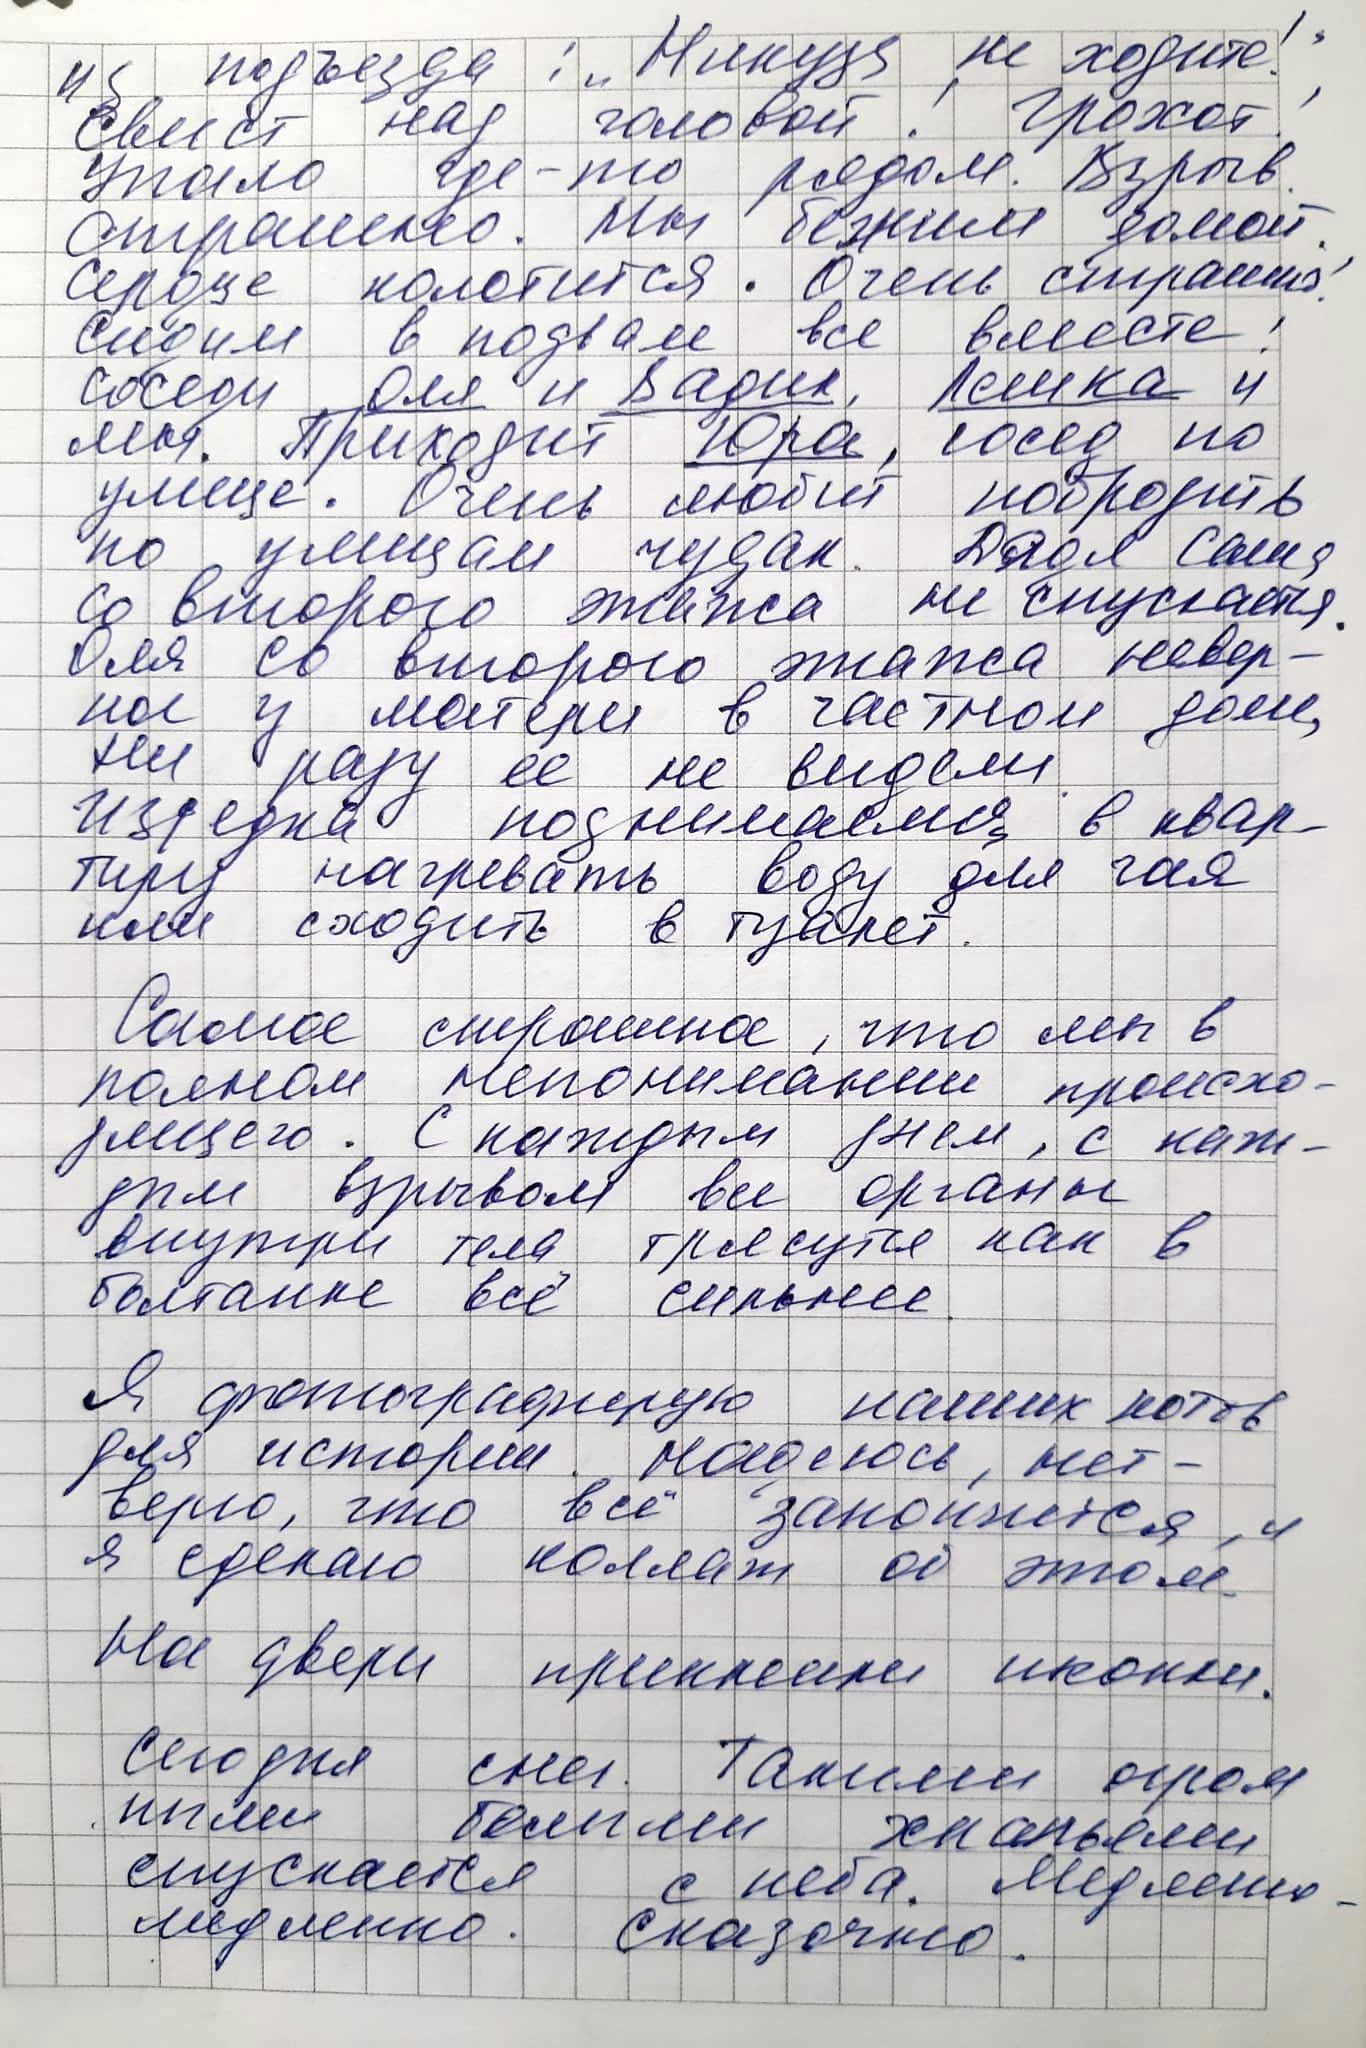 из подъезда: „Никуда не ходите!"
Свист над головой! Грохот!
Упало где-то рядом. Взрыв.
Страшно. Мы бежим домой.
Сердце колотится. Очень страшно!
Сидим в подвале все вместе:
соседи Оля и Вадик, Ленка и
мы. Приходит Юра, сосед по
улице. Очень любит побродить
по улицам чудак. Дядя Саша
со второго этажа не спускается.
Оля со второго этажа навер-
ное у матери в частном доме,
ни разу её не видели.
Изредка поднимаемся в квар-
тиру нагревать воду для чая
или сходить в туалет.
Самое страшное, что мы в
полном непонимании происхо-
дящего. С каждым днем, с каж-
дым взрывом все органы
внутри тела трясутся как в
болтанке всё сильнее.
Я фотографирую наших котов
для истории. Надеюсь, нет-
верю, что всё закончится, и
я сделаю коллаж об этом.
На двери приклеили иконки.
Сегодня снег. Такими огром
ными белыми хлопьями
спускается с неба. Медленно-
медленно. Сказочно.